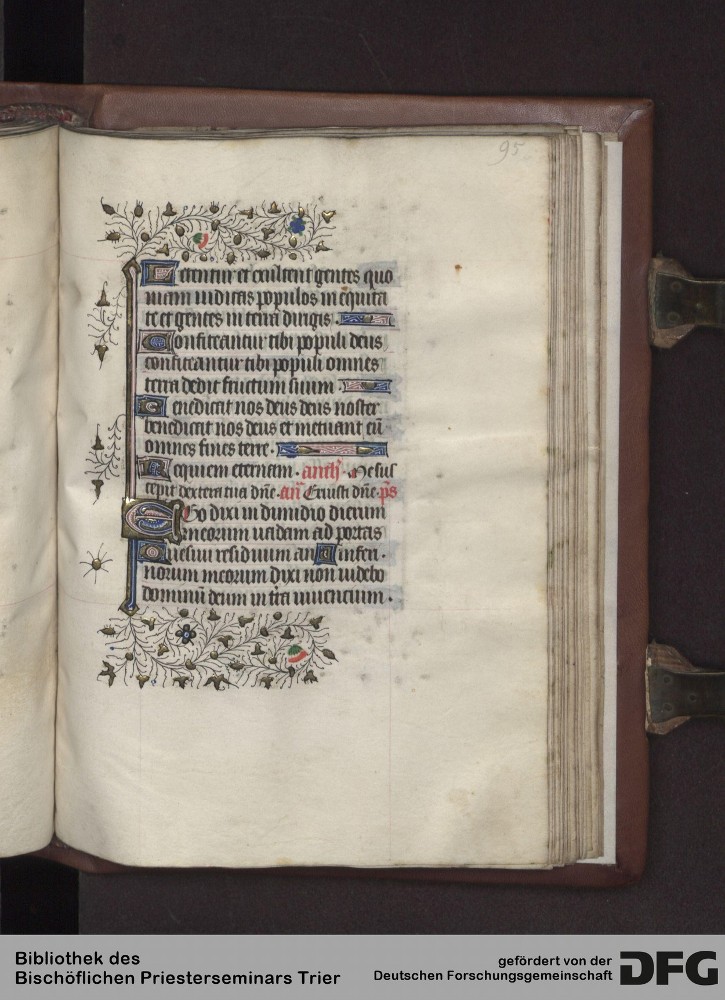 95
Letentur et exultent gentes quo
niam iudicas populos in equita
te et gentes in terra dirigis.
Confiteantur tibi populi deus
confiteantur tibi populi omnes
terra dedit fructum suum.
Benedicat nos deus deus noster
benedicat nos deus et metuant eū
omnes fines terre.
Requiem eternam. anth̄. Me sus
cepit dextera tua dn̄e. an̄ Exiusti dn̄e. ps
EGo dixi in dimidio dierum
meorum uadam ad portas
Quesiui residuum an inferi.
norum meorum dixi non uidebo
dominū deum in tr̄a uiuencium.
Bibliothek des
Bischöflichen Priesterseminars Trier
gefördert von der
Deutschen Forschungsgemeinschaft
DFG